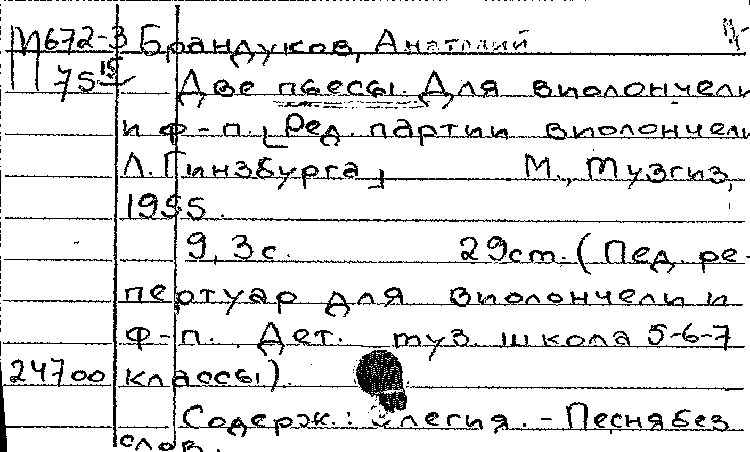 М672-3 Брандуков, Анатолий
75 15 Две пьесы. Для виолончели
и ф-п. [Ред. партии виолончели
Л. Гинзбурга] М., Музгиз,
1955.
9, 3 с. 29 ст. (Пед. ре-
пертуар для виолончели и
ф-п. Дет. муз. школа 5-6-7
24700 классы).
Содерж.: Элегия. - Песня без
слов.